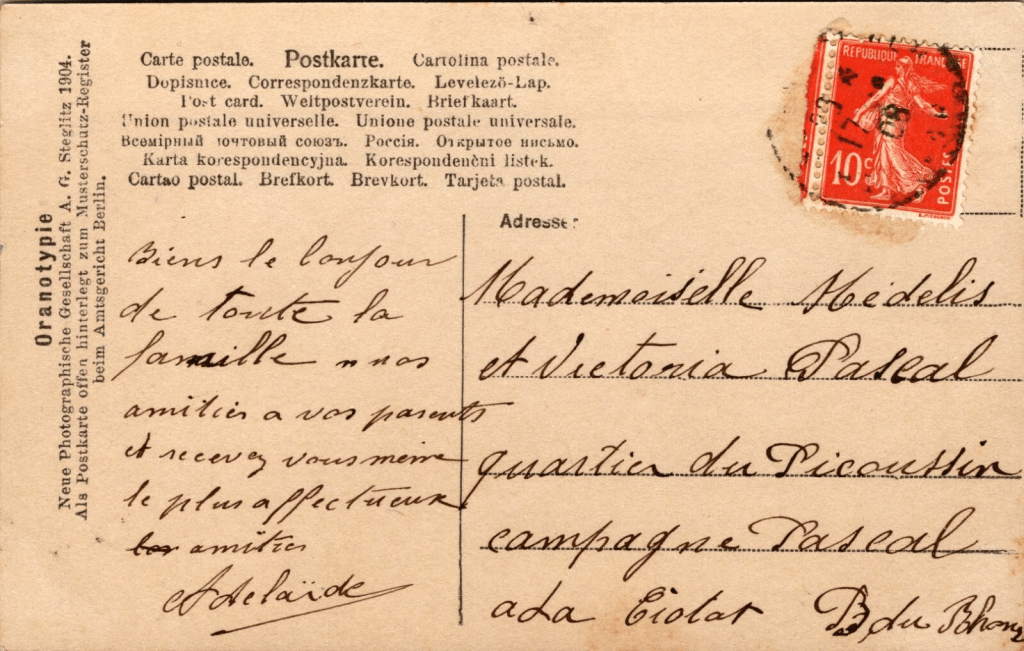 Carte postale. Postkarte. Cartolina postale.
Dopisnice. Correspondenzkarte. Levelező-Lap.
Post card. Weltpostverein. Briefkaart.
Union postale universelle. Unione postale universale.
Всемірный почтовый союзъ. Россія. Открытое письмо.
Karta korespondencyjna. Korespondenční listek.
Cartao postal. Brefkort. Brevkort. Tarjeta postal.
Oranotypie
Neue Photographische Gesellschaft A. G. Steglitz 1904.
Als Postkarte offen hinterlegt zum Musterschutz-Register
beim Amtsgericht Berlin.
REPUBLIQUE FRANÇAISE
10c
POSTES
17
09
Adresse:
Biens le bonjour
de toute la
famille nos
amitiés a vos parents
et recevez vous même
le plus affectueux
amitiés
Adelaïde
Mademoiselle Médelis
et Victoria Pascal
quartier du Picoussin
campagne Pascal
a La Ciotat B du Rhone